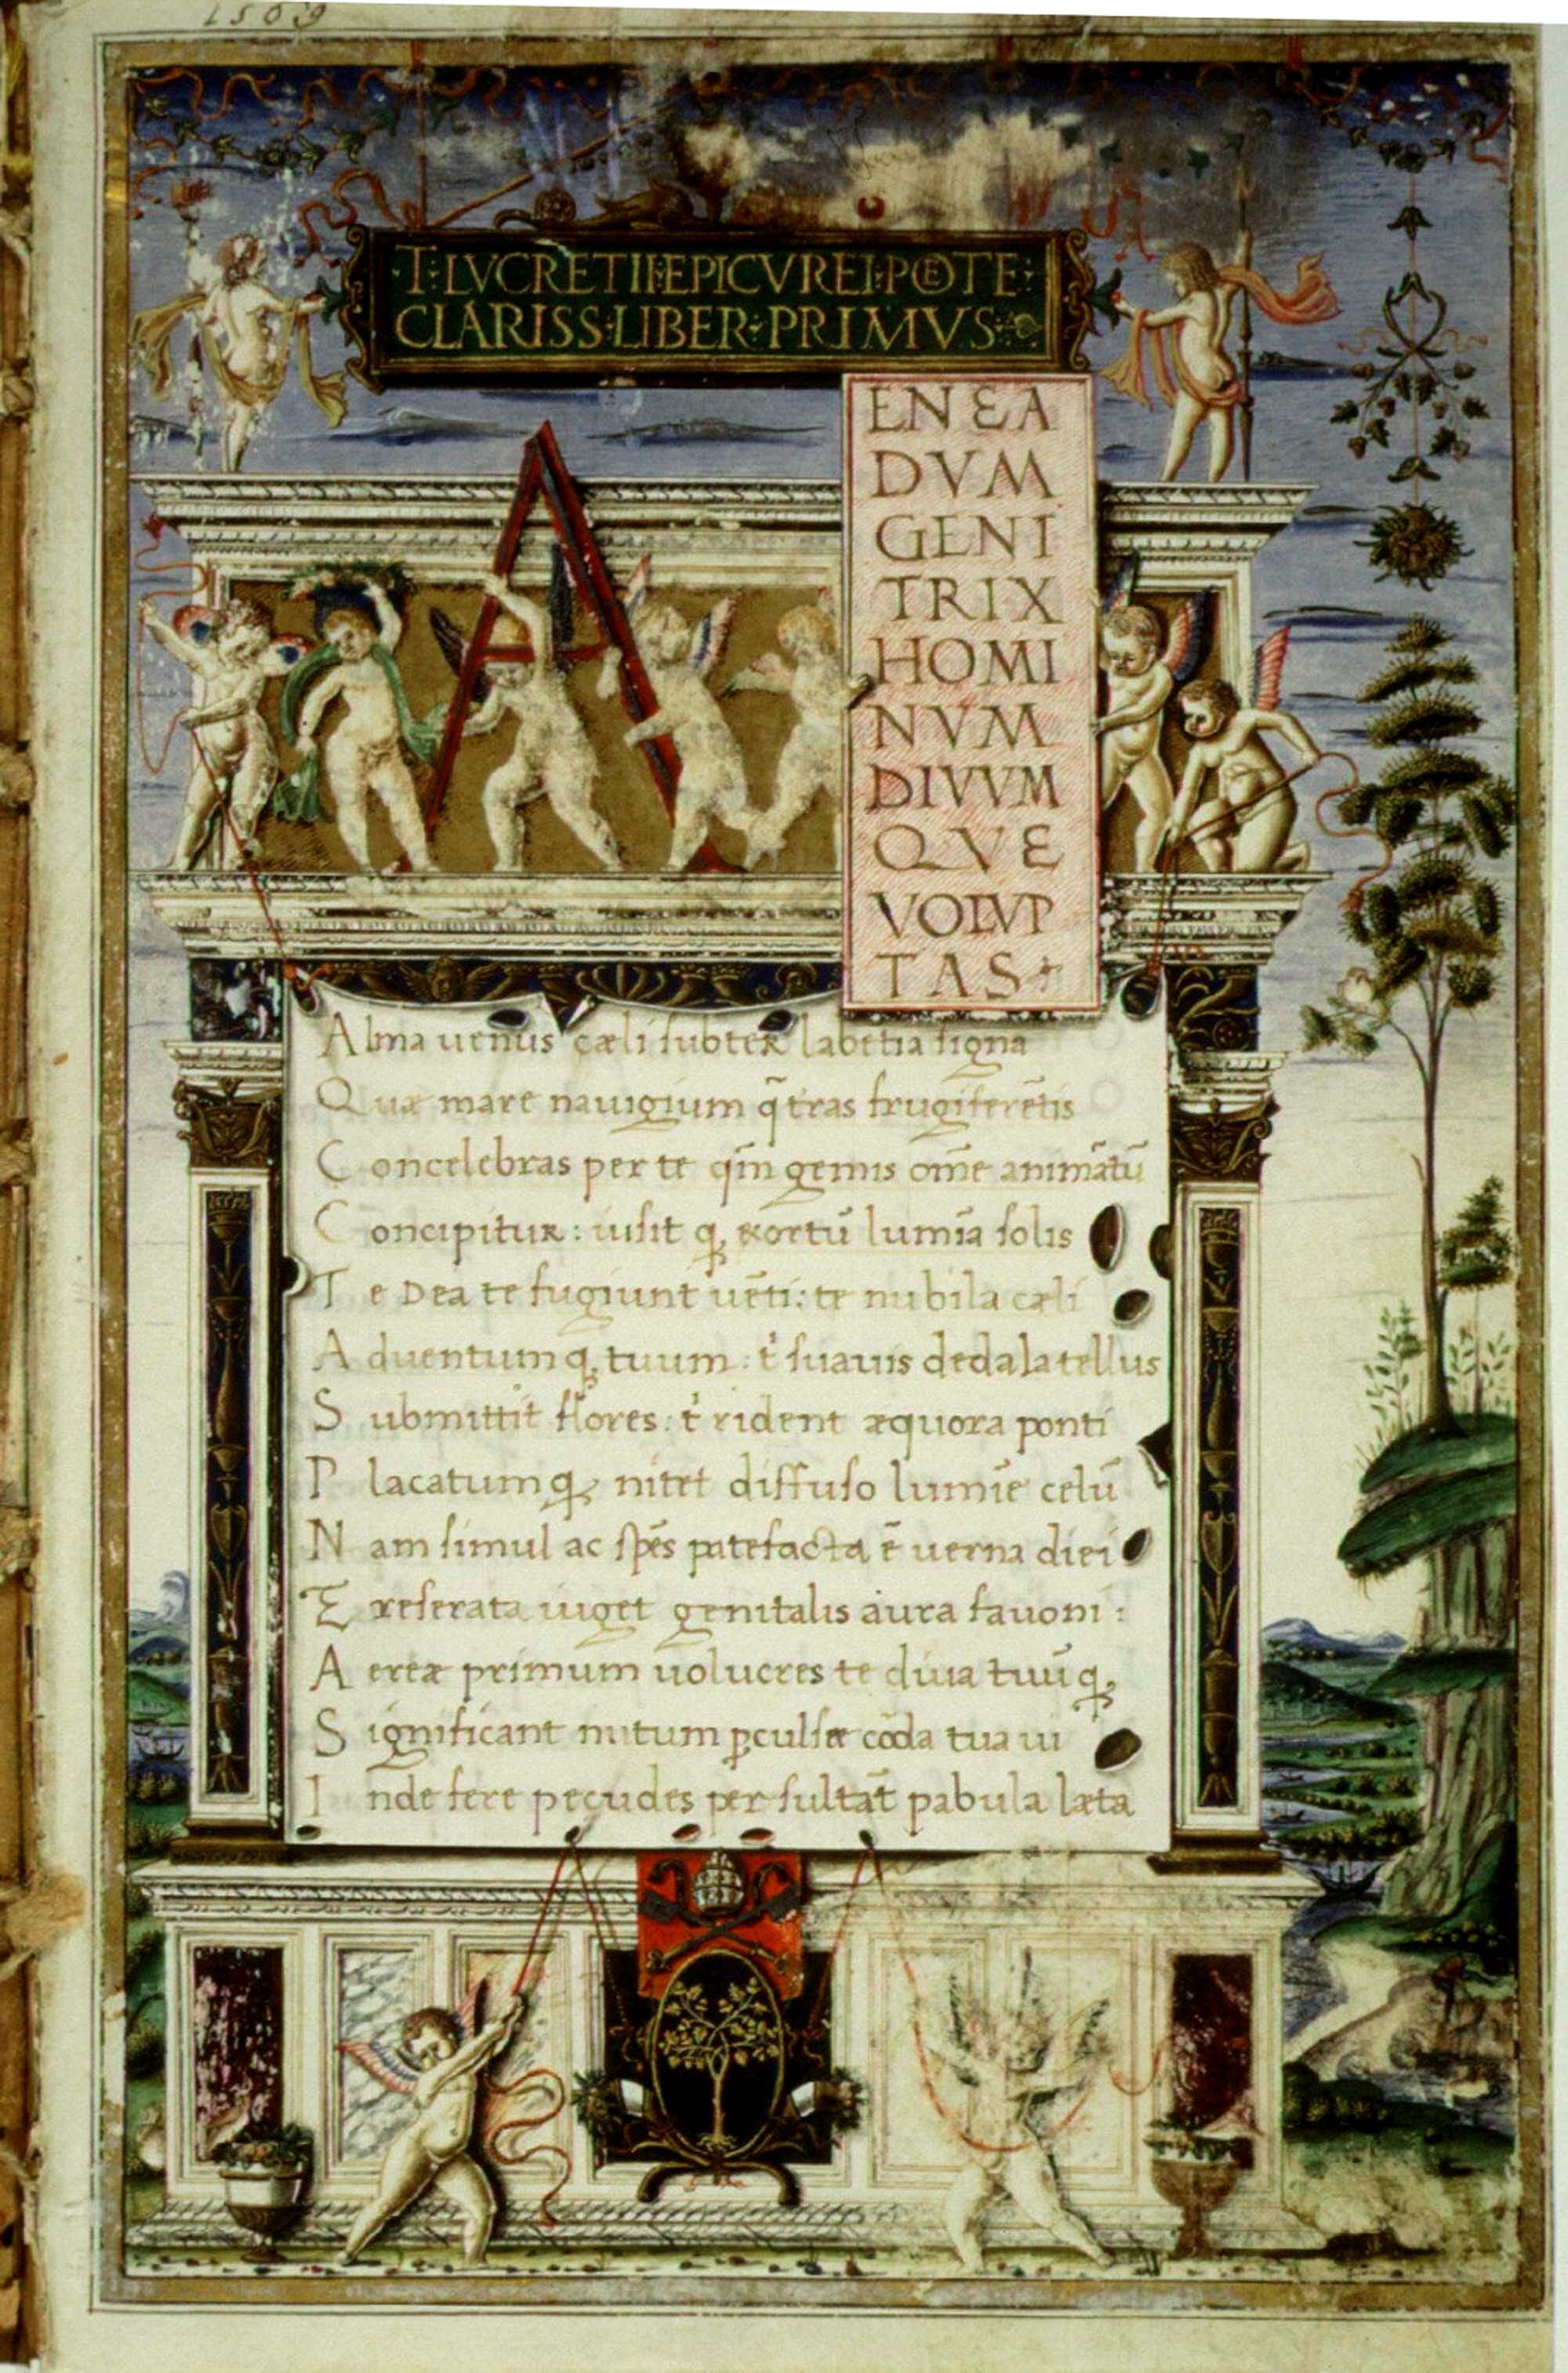 1509
·T·LVCRETII·EPICVREI·POETE·
CLARISS·LIBER·PRIMVS·
A
ENEA
DVM
GENI
TRIX
HOMI
NVM
DIVVM
QVE
VOLVP
TAS
Alma uenus cæli subter labētia signa
Quæ mare nauigium q̄ t̄ras frugiferētis
Concelebras per te qm̄ genus om̄e animātū
Concipitur: uisit q; exortū lumīa solis
Te Dea te fugiunt uēti: te nubila cæli
Aduentumq; tuum: t' suauis dedala tellus
Submittit flores: t' rident æquora ponti
Placatumq; nitet diffuso lumīe celū
Nam simul ac spēs patefacta ē uerna diei
Et reserata uiget genitalis aura fauoni:
Aereæ primum uolucres te diua tuūq;
Significant nutum ꝑculsæ coda tua ui
Inde fere pecudes per sultāt pabula læta